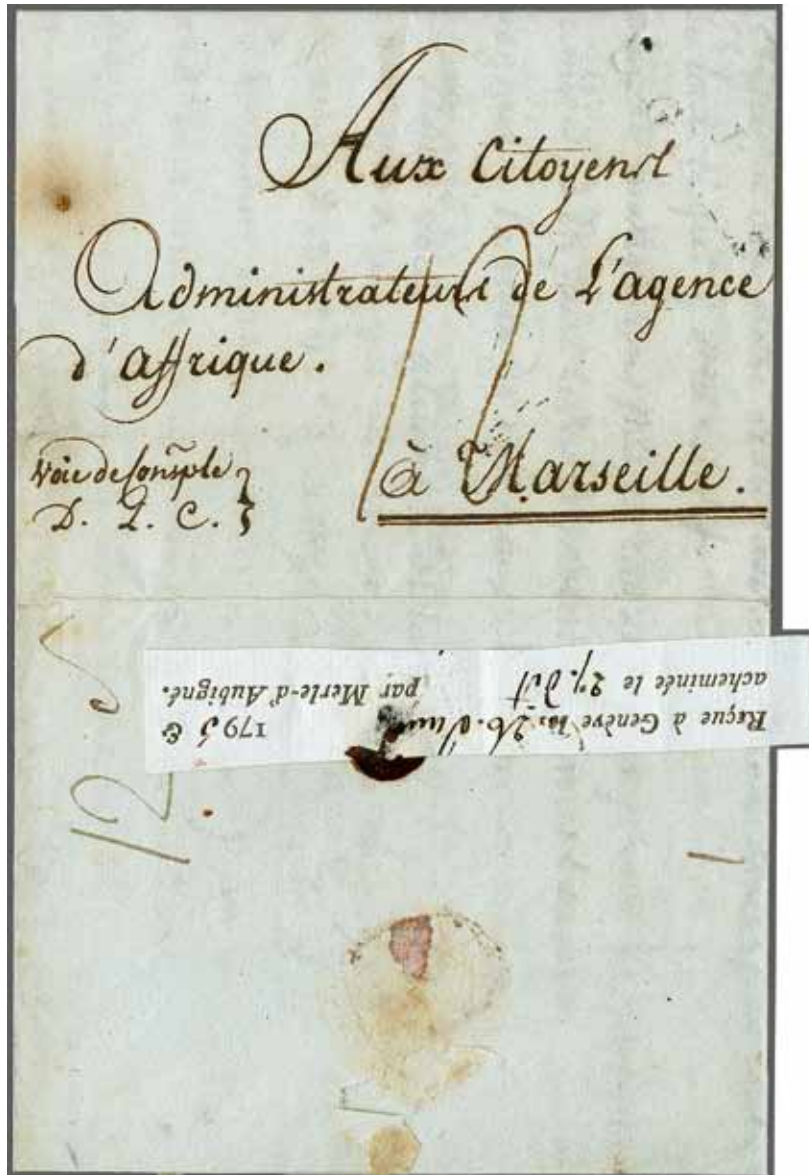 Aux Citoyens
Administrateurs de L'agence
d'Affrique.
Voie de Consple
D. L. C.
à Marseille.
12
Reçue à Genève 26. Juin 1795 &
acheminée le 27. dit par Merle-d'Aubigné.